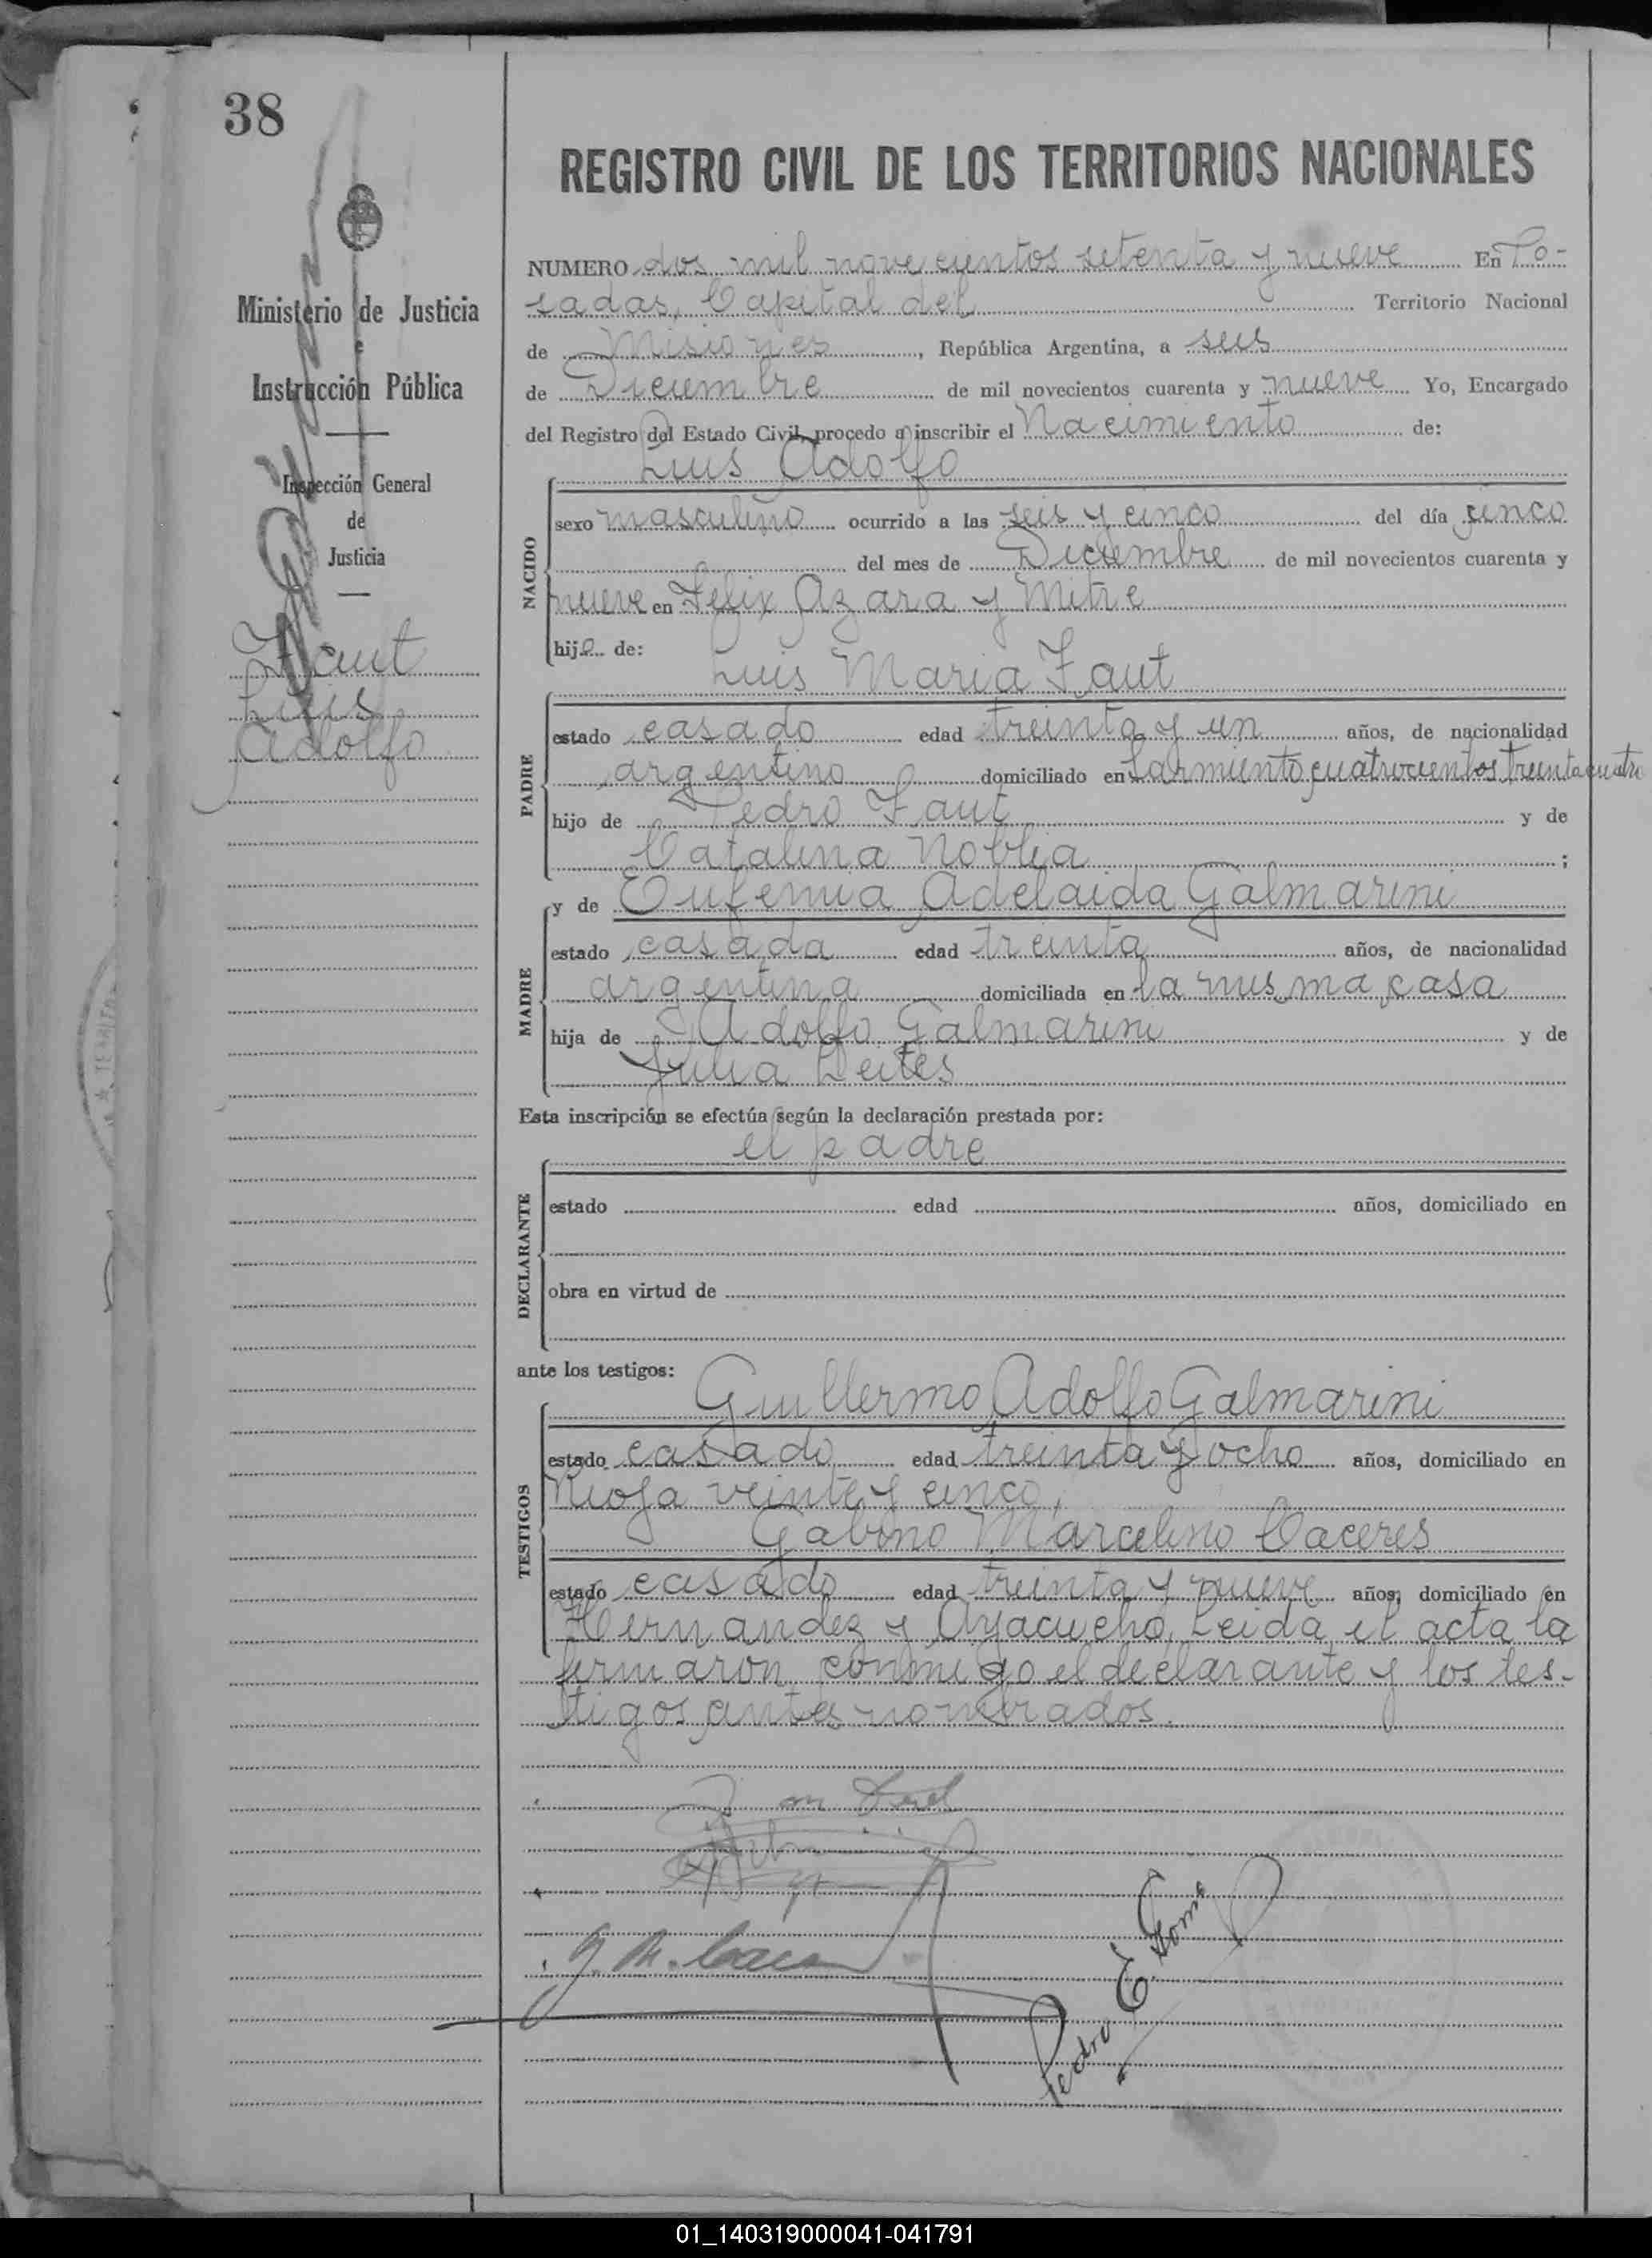 38
Ministerio de Justicia
e
Instrucción Pública
Inspección General
de
Justicia
Faut
Luis
Adolfo
REGISTRO CIVIL DE LOS TERRITORIOS NACIONALES
NUMERO dos mil novecientos setenta y nueve En Po-
sadas, Capital del Territorio Nacional
de Misiones, República Argentina, a seis
de Diciembre de mil novecientos cuarenta y nueve Yo, Encargado
del Registro del Estado Civil, procedo a inscribir el Nacimiento de:
Luis Adolfo
NACIDO
sexo masculino ocurrido a las seis y cinco del día cinco
del mes de Diciembre de mil novecientos cuarenta y
nueve en Felix Azara y Mitre
hijo de:
Luis Maria Faut
PADRE
estado casado edad treinta y un años, de nacionalidad
argentino domiciliado en Sarmiento cuatrocientos treinta cuatro
hijo de Pedro Faut y de
Catalina Noblia ;
y de Eufemia Adelaida Galmarini
MADRE
estado casada edad treinta años, de nacionalidad
argentina domiciliada en la misma casa
hija de Adolfo Galmarini y de
Julia Leites
Esta inscripción se efectúa según la declaración prestada por:
el padre
DECLARANTE
estado edad años, domiciliado en
obra en virtud de
ante los testigos:
Guillermo Adolfo Galmarini
TESTIGOS
estado casado edad treinta y ocho años, domiciliado en
Rioja veinte y cinco,
Gabino Marcelino Caceres
estado casado edad treinta y nueve años, domiciliado en
Hernandez y Ayacucho, Leida el acta la
firmaron conmigo el declarante y los tes-
tigos antes nombrados.
Pedro E.
01_140319000041-041791